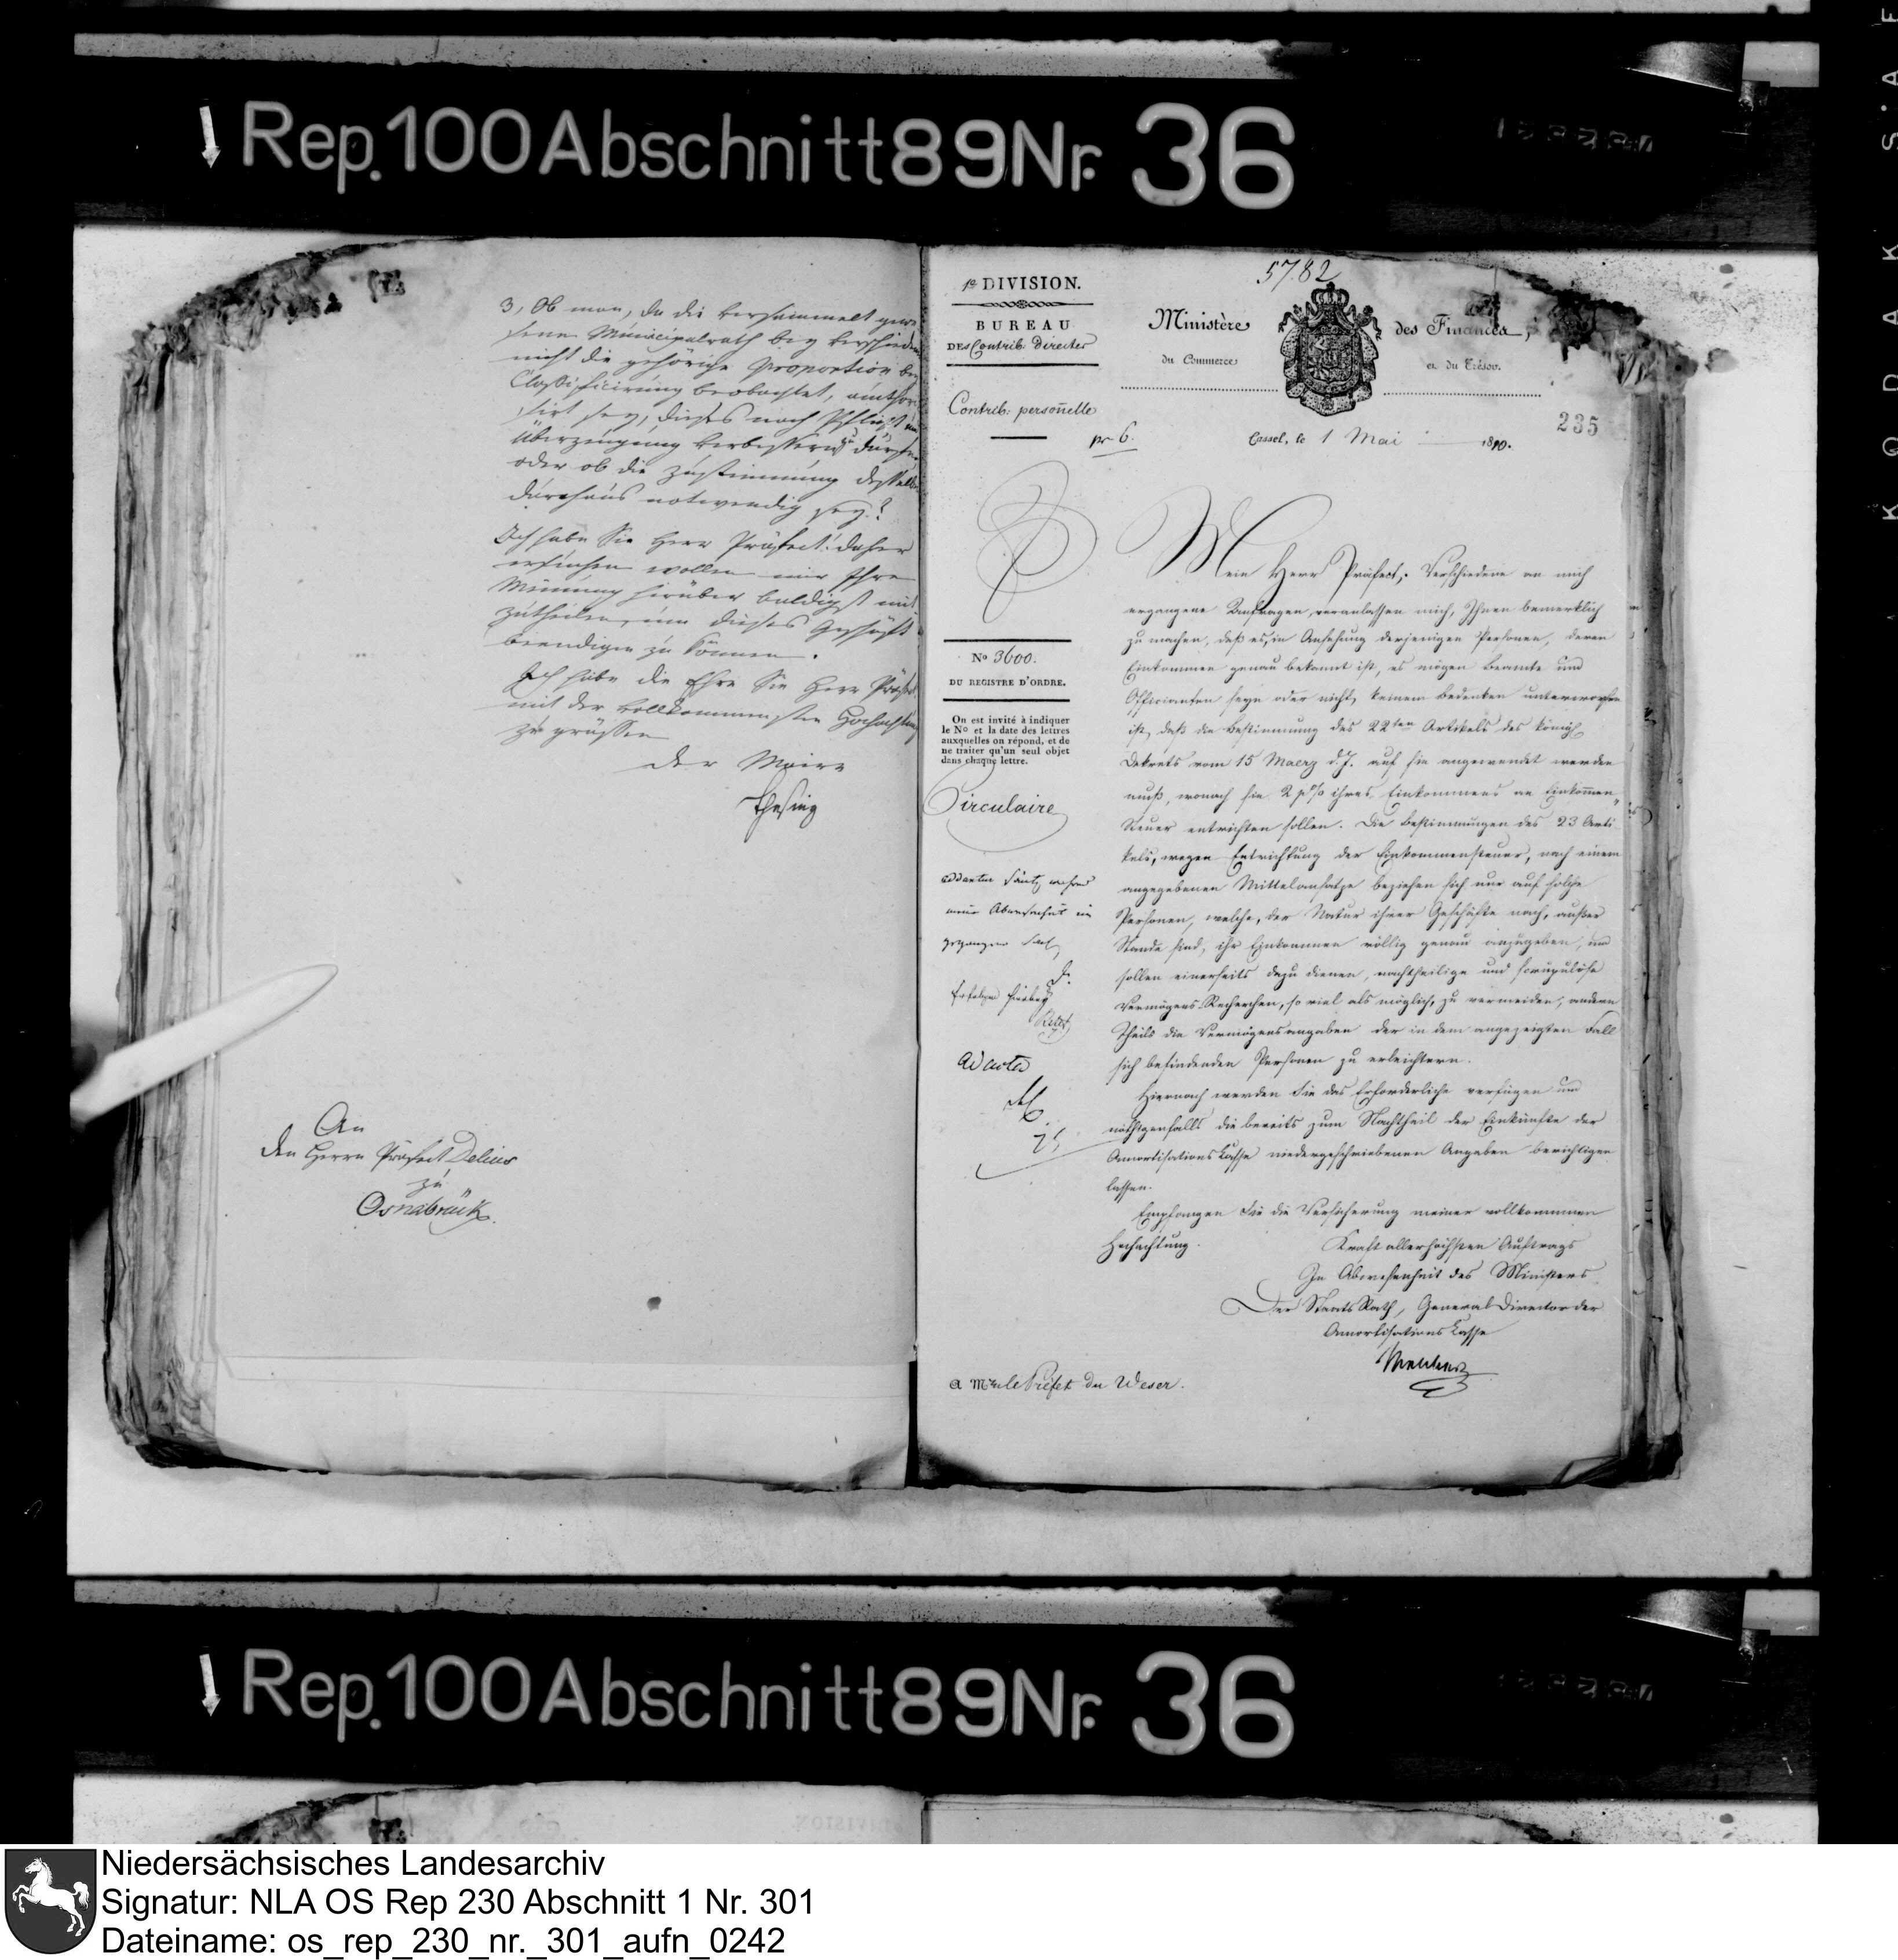 Rep. 100 Abschnitt 89 Nr. 36
3, Ob man, da die versammelt gewe-
sene Municipalrath bey verschiede
nicht die gehörige Proportion be
Classificirung beobachtet, authori
sirt sey, dieses nach Pflicht u
Überzeugung verbessern dürfe
oder ob die Zustimmung desselb
durchaus notwendig sey?
Ich habe Sie Herr Präfect! daher
ersuchen wollen mir Ihre
Meinung hierüber baldigst mit
zutheilen, um dieses Geschäft
beendigen zu können.
Ich habe die Ehre Sie Herr Präfect
mit der vollkommensten Hochachtung
zu grüssen
Der Maire
Thesing
An
den Herrn Präfect Delius
zu
Osnabrück.
5782
1e DIVISION.
BUREAU
DES Contrib. Directes
Contrib. personnelle
pr 6.
Ministère des Finances,
du Commerce et du Trésor.
235
Cassel, le 1 Mai 1810.
No 3600.
DU REGISTRE D'ORDRE.
On est invité à indiquer
le No et la date des lettres
auxquelles on répond, et de
ne traiter qu'un seul objet
dans chaque lettre.
Circulaire
Mein Herr Präfect, Verschiedene an mich
ergangene Anfragen veranlassen mich, Ihnen bemerklich
zu machen, daß es, in Ansehung derjenigen Personen, deren
Einkommen genau bekannt ist, es mögen Beamte und
Officianten seyn oder nicht, keinem Bedenken unterworfen
ist, daß die Bestimmung des 22ten Artikels des königl.
Dekrets vom 15 Maerz d.J. auf sie angewendet werden
muß, wonach sie 2 p% ihres Einkommens an Einkommen-
Steuer entrichten sollen. Die Bestimmungen des 23 Arti-
kels, wegen Entrichtung der Einkommensteuer, nach einem
angegebenen Mittelansatze beziehen sich nur auf solche
Personen, welche, der Natur ihrer Geschäfte nach, außer
Stande sind, ihr Einkommen völlig genau anzugeben, und
sollen einerseits dazu dienen, nachtheilige und scrupulöse
Vermögens Recherchen, so viel als möglich, zu vermeiden, andern
Theils die Vermögensangaben der in dem angezeigten Fall
sich befindenden Personen zu erleichtern.
Hiernach werden Sie das Erforderliche verfügen und
nöthigenfalls die bereits zum Nachtheil der Einkünfte der
Amortisations Casse niedergeschriebenen Angaben berichtigen
lassen.
Empfangen Sie die Versicherung meiner vollkommnen
Hochachtung.
Kraft allerhöchsten Auftrags
In Abwesenheit des Ministers
Der Staats Rath, General Director der
Amortisations Casse
Malchus
meine Abwesenheit ein
gegangen
ad acta
a Mr le Préfet du Weser.
Rep. 100 Abschnitt 89 Nr. 36
KODAK SAFE
Niedersächsisches Landesarchiv
Signatur: NLA OS Rep 230 Abschnitt 1 Nr. 301
Dateiname: os_rep_230_nr._301_aufn_0242